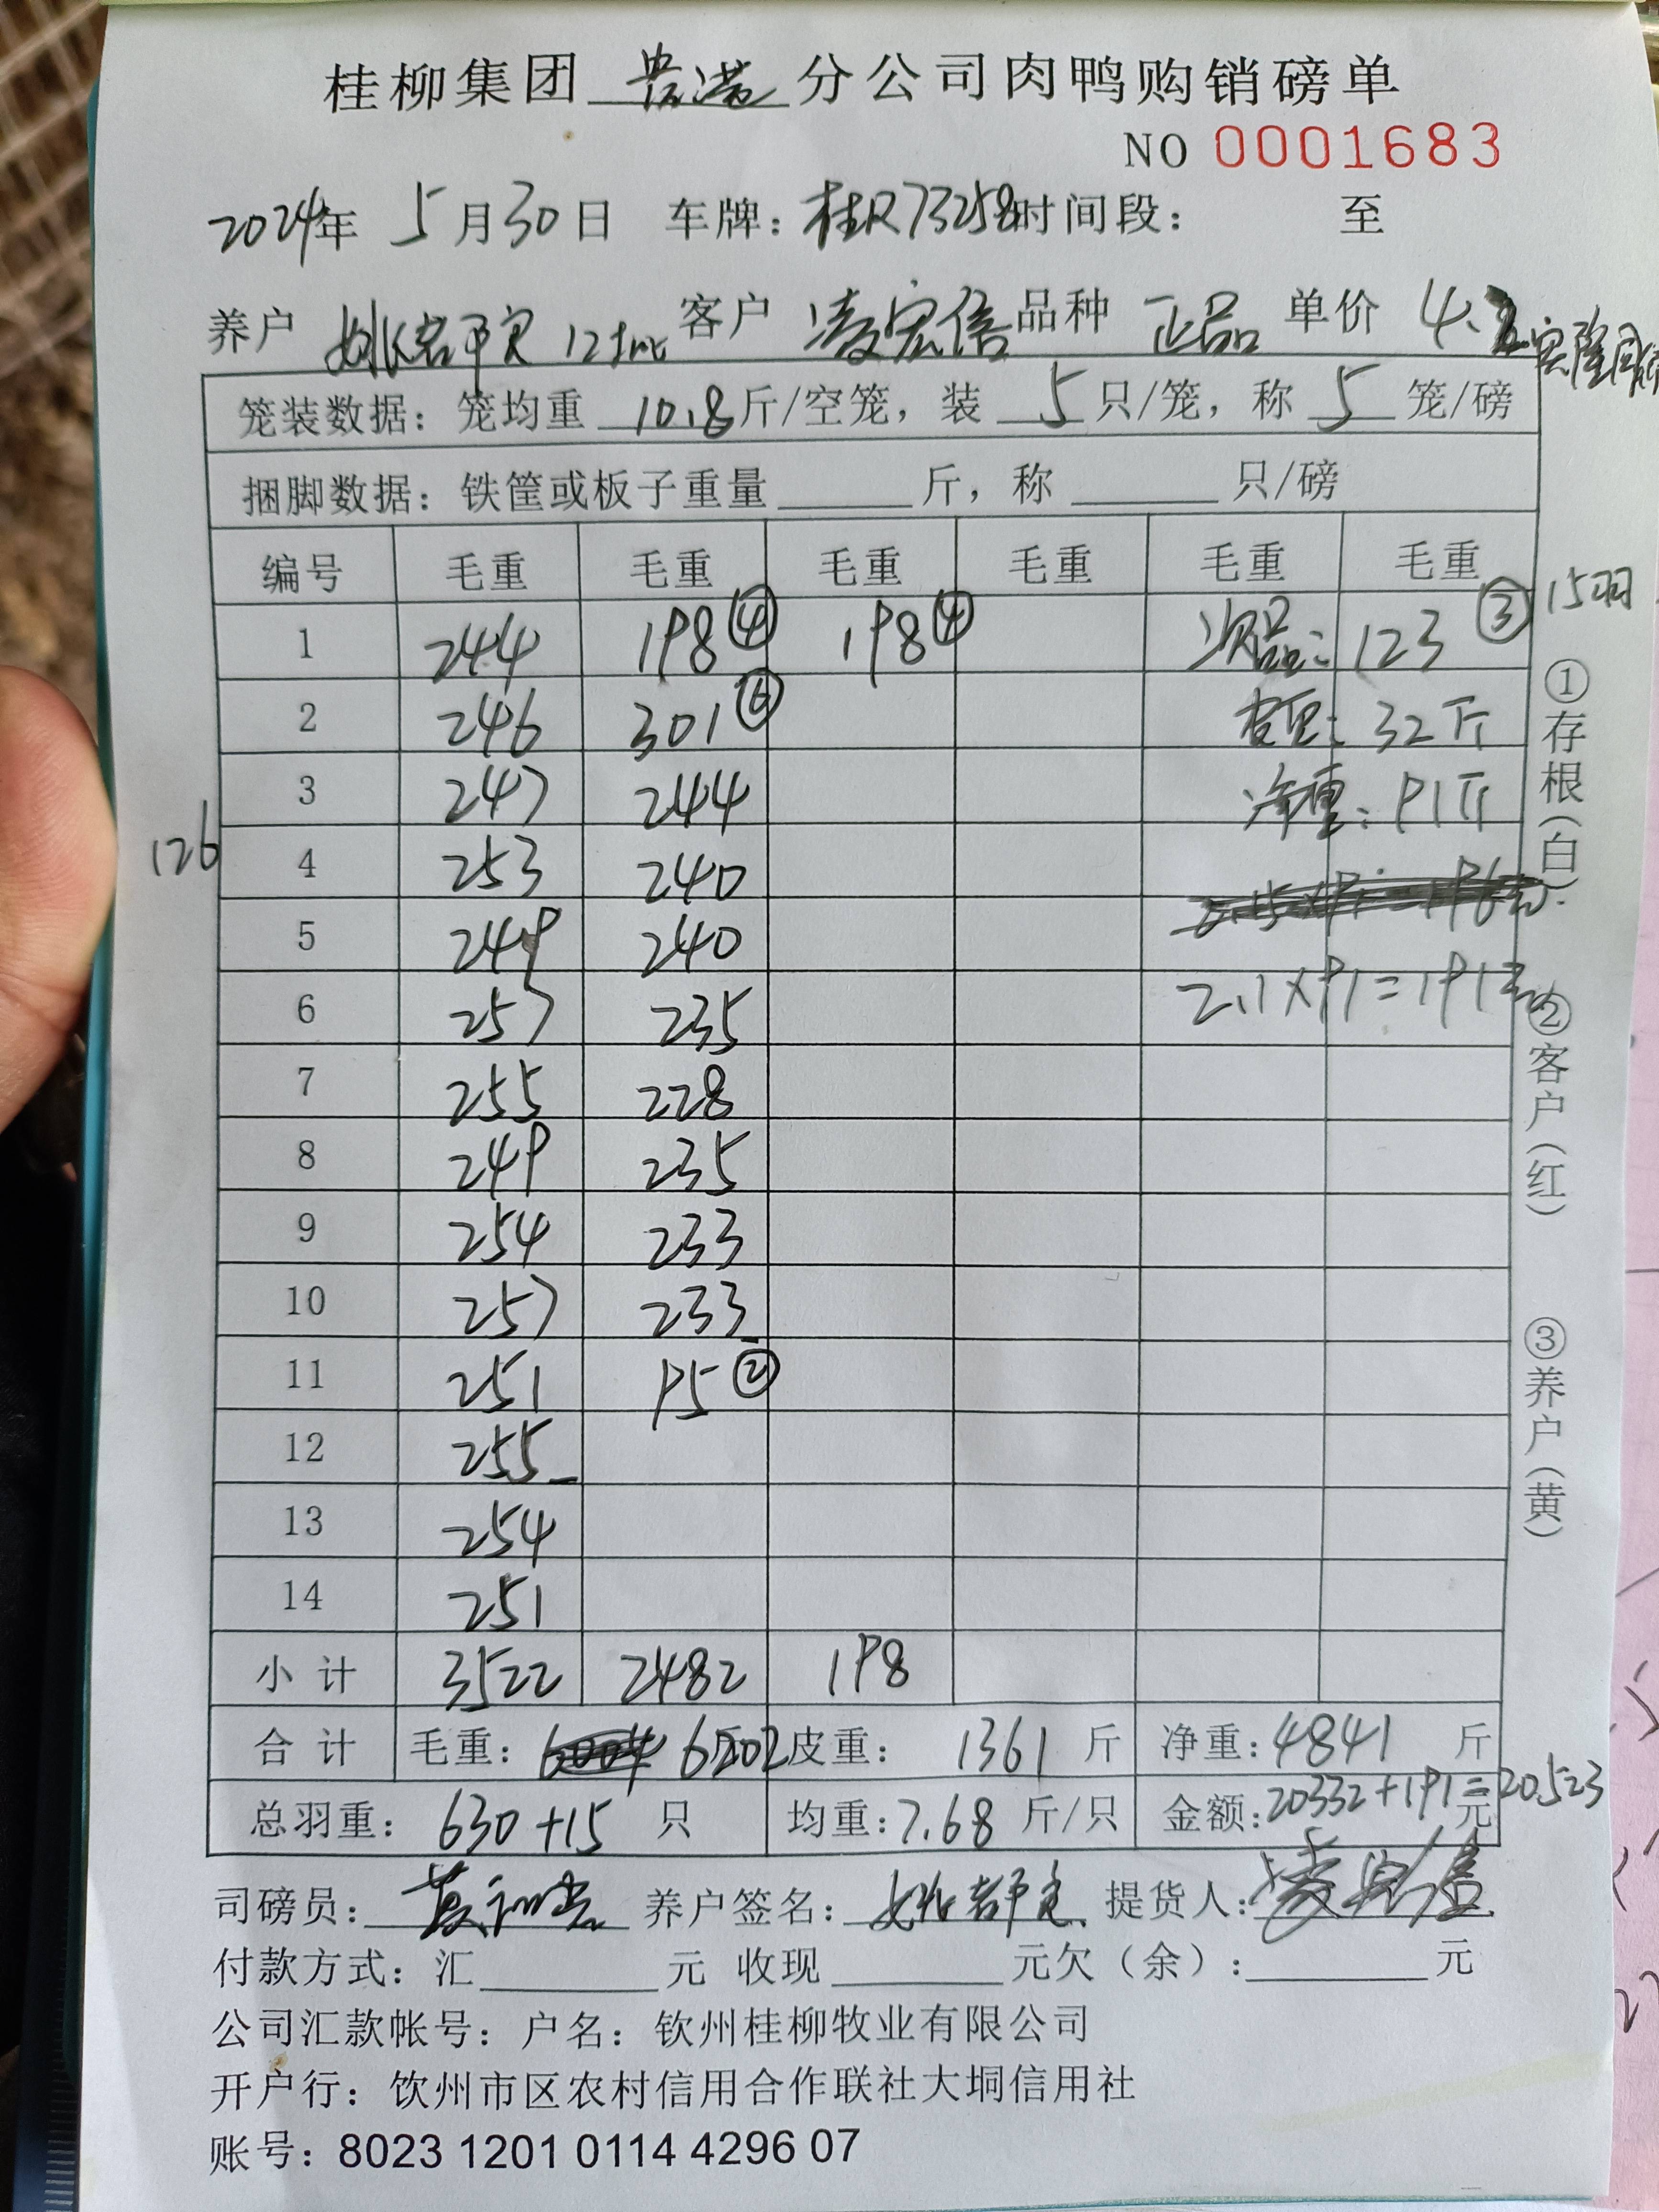 桂柳集团 贵港 分公司肉鸭购销磅单
NO 0001683
2024年 5月30日 车牌：桂R73258 时间段： 至
养户 12批 客户 凌宏信 品种 正品 单价 4.2
笼装数据：笼均重 10.8 斤/空笼，装 5 只/笼，称 5 笼/磅
捆脚数据：铁筐或板子重量 斤，称 只/磅
编号 毛重 毛重 毛重 毛重 毛重 毛重
1 244 198④ 198④ 次品： 123③ 15羽
2 246 301⑥ 皮重： 32斤
3 247 244 净重： 91斤
126
4 253 240
5 249 240
6 257 235 2.1×91=191元
7 255 228
8 249 235
9 254 233
10 257 233
11 251 95②
12 255
13 254
14 251
小计 3522 2482 198
合计 毛重： 6202 皮重： 1361 斤 净重：4841 斤
总羽重： 630+15 只 均重：7.68 斤/只 金额：20332+191=20523 元
司磅员： 养户签名： 提货人：
付款方式：汇 元 收现 元欠（余）： 元
公司汇款帐号：户名：钦州桂柳牧业有限公司
开户行：钦州市区农村信用合作联社大垌信用社
账号：8023 1201 0114 4296 07
①存根（白）
②客户（红）
③养户（黄）